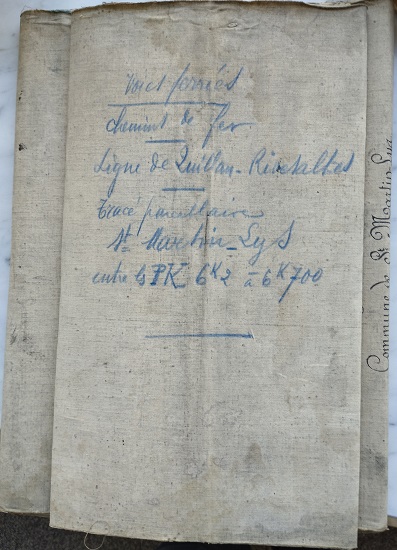 Voies ferrées
chemins de fer
Ligne de Quillan-Rivesaltes
Tracé parcellaire
St Martin-Lys
entre les PK 6K2 à 6K700
Commune de St Martin-Lys